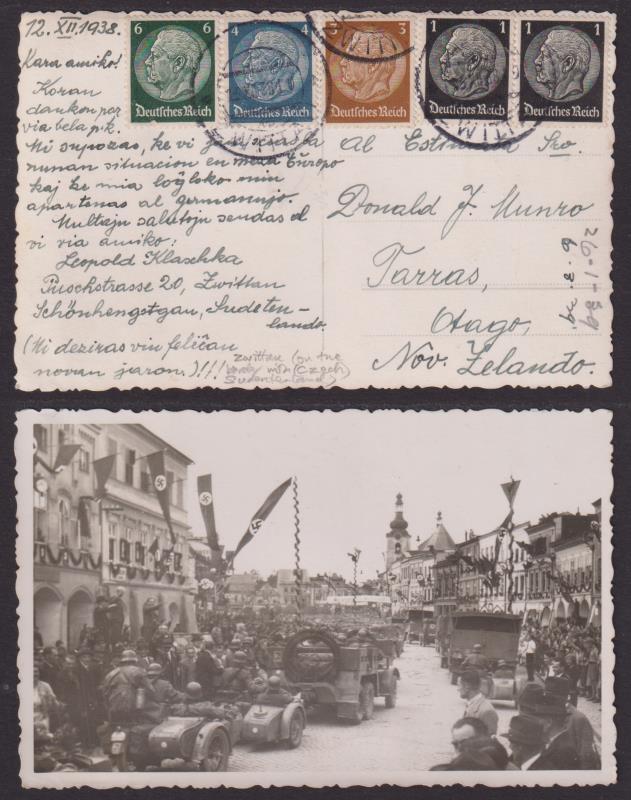 12.XII.1938.
Kara amiko!
Koran
dankon por
via bela p.k.
Mi supozas, ke vi
nunan situacion en meza Europo
kaj ke mia
apartenas al germanujo.
Multajn salutojn sendas al
vi via amiko:
Leopold Klaschka
Puschstrasse 20, Zwittau
Schönhengstgau, Sudeten-
lando.
(Mi deziras vin feliĉan
novan jaron)!!!
Zwittau (on the
Sudetenland)
6 6
Deutsches Reich
4 4
Deutsches Reich
3 3
Deutsches Reich
1 1
Deutsches Reich
1 1
Deutsches Reich
Al Estimata Sro.
Donald J. Munro
Tarras,
Otago,
Nov. Zelando.
26-1-39